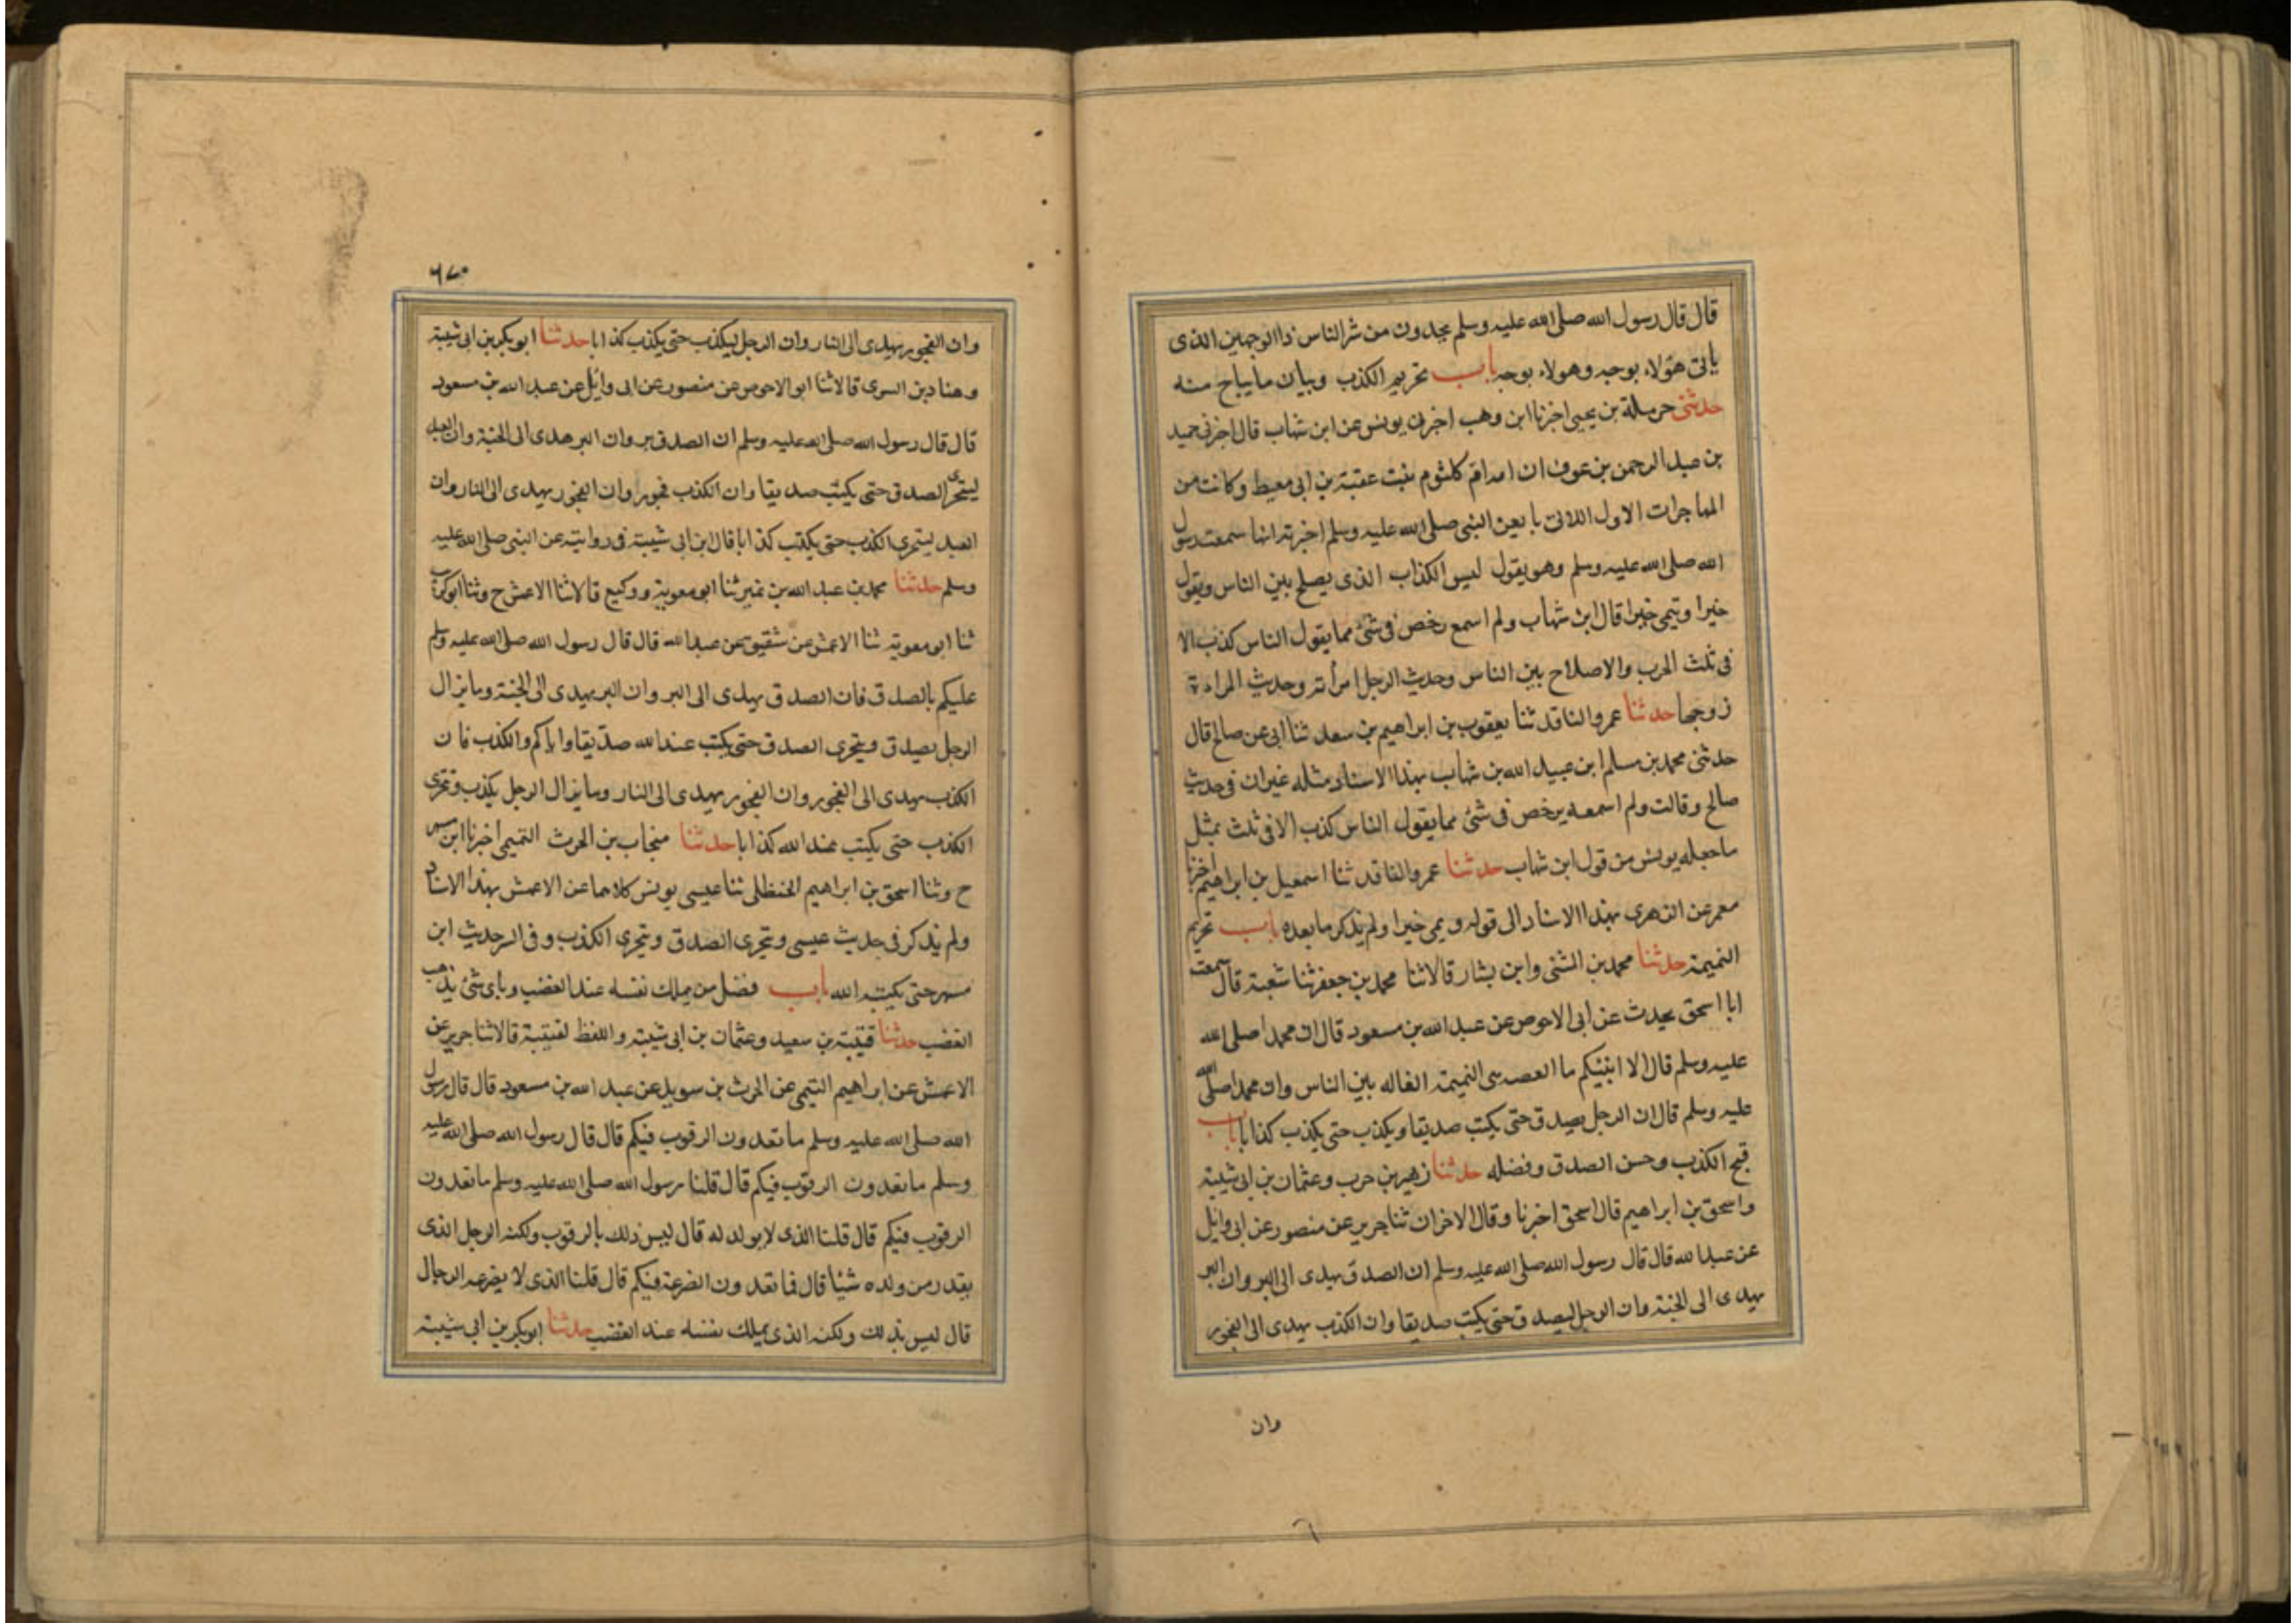 قال قال رسول الله صلى الله عليه وسلم تجدون من شر الناس ذا الوجهين الذى
ياتى هؤلاء بوجه وهولاء بوجه باب تحريم الكذب وبيان ما يباح منه
حدثنى حرملة بن يحيى اخبرنا ابن وهب اخبرنى يونس عن ابن شهاب قال اخبرنى حميد
بن عبد الرحمن بن عوف ان امه ام كلثوم بنت عقبة بن ابى معيط وكانت من
المهاجرات الاول اللاتى بايعن النبى صلى الله عليه وسلم اخبرته انها سمعت رسول
الله صلى الله عليه وسلم وهو يقول ليس الكذاب الذى يصلح بين الناس ويقول
خيرا وينمى خيرا قال ابن شهاب ولم اسمع رخص فى شئ مما يقول الناس كذب الا
فى ثلث الحرب والاصلاح بين الناس وحديث الرجل امرأته وحديث المراءة
زوجها حدثنا عمرو الناقد ثنا يعقوب بن ابراهيم بن سعد ثنا ابى عن صالح قال
حدثنى محمد بن مسلم ابن عبيد الله بن شهاب بهذا الاسناد مثله غير ان فى حديث
صالح وقالت ولم اسمعه يرخص فى شئ مما يقول الناس كذب الا فى ثلث بمثل
ما جعله يونس من قول ابن شهاب حدثنا عمرو الناقد ثنا اسمعيل بن ابراهيم اخبرنا
معمر عن الزهرى بهذا الاسناد الى قوله ويمى خيرا ولم يذكر ما بعده باب تحريم
النميمة حدثنا محمد بن المثنى وابن بشار قالا ثنا محمد بن جعفر ثنا شعبة قال سمعت
ابا اسحق يحدث عن ابى الاحوص عن عبد الله بن مسعود قال ان محمدا صلى الله
عليه وسلم قال الا انبئكم ما العصه هى النميمة القاله بين الناس وان محمدا صلى الله
عليه وسلم قال ان الرجل يصدق حتى يكتب صديقا ويكذب حتى يكذب كذابا باب
قبح الكذب وحسن الصدق وفضله حدثنا زهير بن حرب وعثمان بن ابى شيبة
واسحق بن ابراهيم قال اسحق اخبرنا وقال الاخران ثنا جرير عن منصور عن ابى وايل
عن عبد الله قال قال رسول الله صلى الله عليه وسلم ان الصدق يهدى الى البر وان البر
يهدى الى الجنة وان الرجل ليصدق حتى يكتب صديقا وان الكذب يهدى الى الفجور
وان
٦٧٠
وان الفجور يهدى الى النار وان الرجل ليكذب حتى يكذب كذابا حدثنا ابو بكر بن ابى شيبة
وهناد بن السرى قالا ثنا ابو الاحوص عن منصور عن ابى وائل عن عبد الله بن مسعود
قال قال رسول الله صلى الله عليه وسلم ان الصدق بر وان البر هدى الى الجنة وان العبد
ليتحرى الصدق حتى يكتب صديقا وان الكذب فجور وان الفجور يهدى الى النار وان
العبد ليتحرى الكذب حتى يكتب كذابا قال ابن ابى شيبة فى روايته عن النبى صلى الله عليه
وسلم حدثنا محمد بن عبد الله بن نمير ثنا ابو معوية ووكيع قالا ثنا الاعمش ح وثنا ابو كريب
ثنا ابو معوية ثنا الاعمش عن شقيق عن عبد الله قال قال رسول الله صلى الله عليه وسلم
عليكم بالصدق فان الصدق يهدى الى البر وان البر يهدى الى الجنة وما يزال
الرجل يصدق ويتحرى الصدق حتى يكتب عند الله صديقا واياكم والكذب فان
الكذب يهدى الى الفجور وان الفجور يهدى الى النار وما يزال الرجل يكذب ويتحرى
الكذب حتى يكتب عند الله كذابا حدثنا منجاب بن الحرث التميمى اخبرنا ابن مسهر
ح وثنا اسحق بن ابراهيم الحنظلى ثنا عيسى يونس كلاهما عن الاعمش بهذا الاسناد
ولم يذكر فى حديث عيسى ويتحرى الصدق ويتحرى الكذب وفى الرحديث ابن
مسهر حتى يكتبه الله باب فضل من يملك نفسه عند الغضب وباى شئ يذهب
الغضب حدثنا قتيبة بن سعيد وعثمان بن ابى شيبة واللفظ لقتيبة قالا ثنا جرير عن
الاعمش عن ابراهيم التيمى عن الحرث بن سويد عن عبد الله بن مسعود قال قال رسول
الله صلى الله عليه وسلم ما تعدون الرقوب فيكم قال قال رسول الله صلى الله عليه
وسلم ما تعدون الرقوب فيكم قال قلنا رسول الله صلى الله عليه وسلم ما تعدون
الرقوب فيكم قال قلنا الذى لا يولد له قال ليس ذلك بالرقوب ولكنه الرجل الذى
يقدر من ولده شيئا قال فما تعدون الصرعة فيكم قال قلنا الذى لا يصرعه الرجال
قال ليس بذلك ولكنه الذى يملك نفسه عند الغضب حدثنا ابو بكر بن ابى شيبة